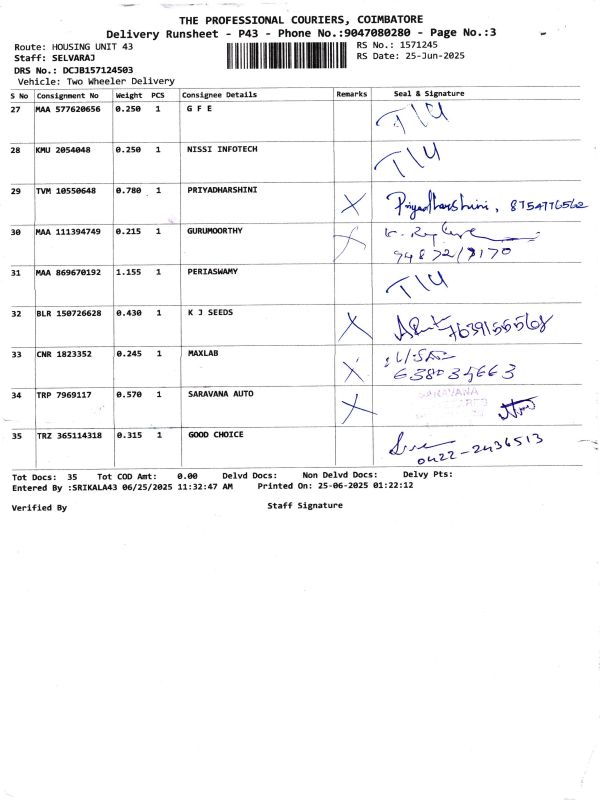 THE PROFESSIONAL COURIERS, COIMBATORE
Delivery Runsheet - P43 - Phone No.:9047080280 - Page No.:3
Route: HOUSING UNIT 43 RS No.: 1571245
Staff: SELVARAJ RS Date: 25-Jun-2025
DRS No.: DCJB157124503
Vehicle: Two Wheeler Delivery
S No Consignment No Weight PCS Consignee Details Remarks Seal & Signature
27 MAA 577620656 0.250 1 G F E
28 KMU 2054048 0.250 1 NISSI INFOTECH
29 TVM 10550648 0.780 1 PRIYADHARSHINI X Priyadharshini, 8754776562
30 MAA 111394749 0.215 1 GURUMOORTHY X
31 MAA 869670192 1.155 1 PERIASWAMY
32 BLR 150726628 0.430 1 K J SEEDS X
33 CNR 1823352 0.245 1 MAXLAB X
34 TRP 7969117 0.570 1 SARAVANA AUTO X SARAVANA
35 TRZ 365114318 0.315 1 GOOD CHOICE
0422-2436513
Tot Docs: 35 Tot COD Amt: 0.00 Delvd Docs: Non Delvd Docs: Delvy Pts:
Entered By :SRIKALA43 06/25/2025 11:32:47 AM Printed On: 25-06-2025 01:22:12
Verified By Staff Signature